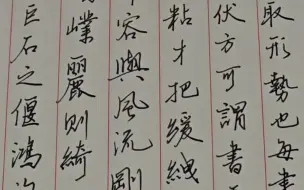 取形勢也每書
伏方可謂書
粘才把緩
容與風流剛
麗則綺
巨石之偃鴻